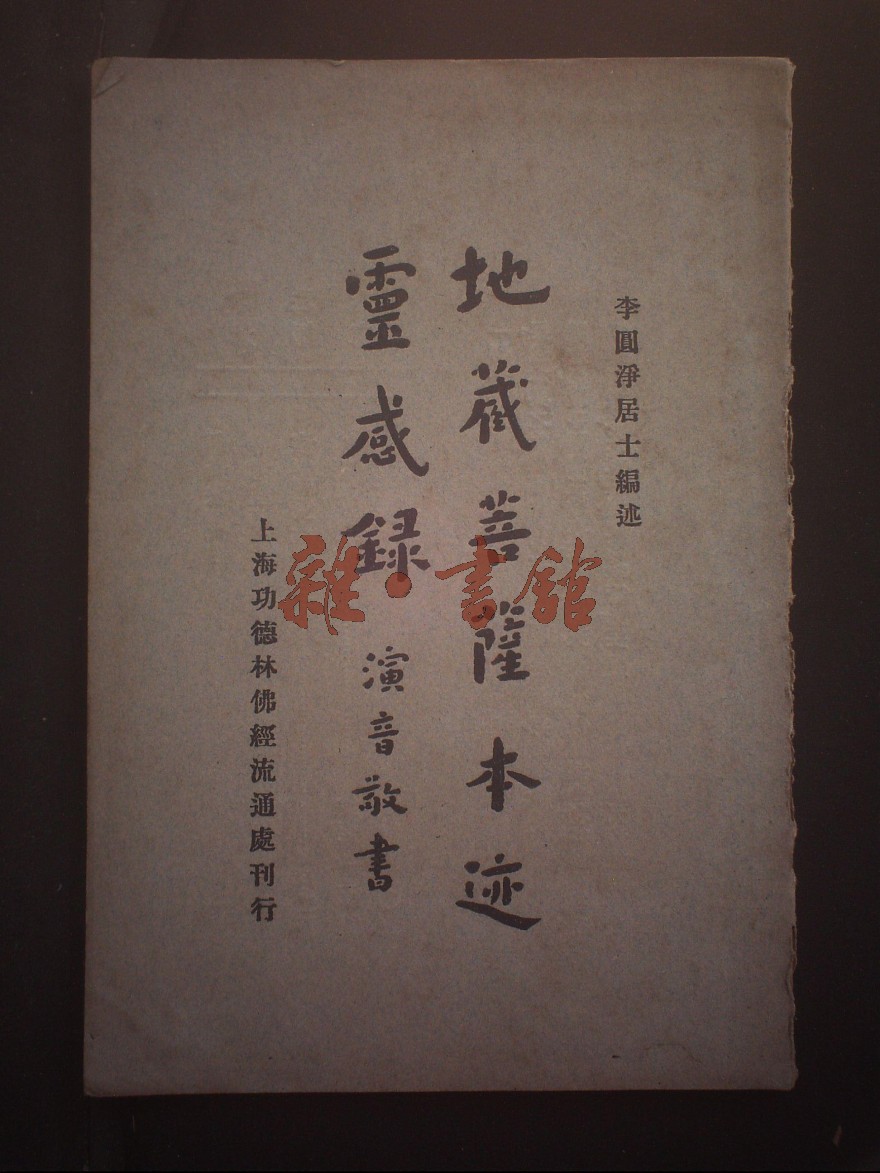 李圓淨居士編述
地藏菩薩本迹
靈感録 演音敬書
上海功德林佛經流通處刊行
雜·書館